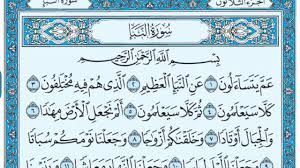 الجزء الثلاثون سورة النبأ
سُورَةُ النَّبَإِ
بِسْمِ اللَّهِ الرَّحْمَٰنِ الرَّحِيمِ
عَمَّ يَتَسَاءَلُونَ ١ عَنِ النَّبَإِ الْعَظِيمِ ٢ الَّذِي هُمْ فِيهِ مُخْتَلِفُونَ ٣
كَلَّا سَيَعْلَمُونَ ٤ ثُمَّ كَلَّا سَيَعْلَمُونَ ٥ أَلَمْ نَجْعَلِ الْأَرْضَ مِهَادًا ٦
وَالْجِبَالَ أَوْتَادًا ٧ وَخَلَقْنَاكُمْ أَزْوَاجًا ٨ وَجَعَلْنَا نَوْمَكُمْ سُبَاتًا ٩